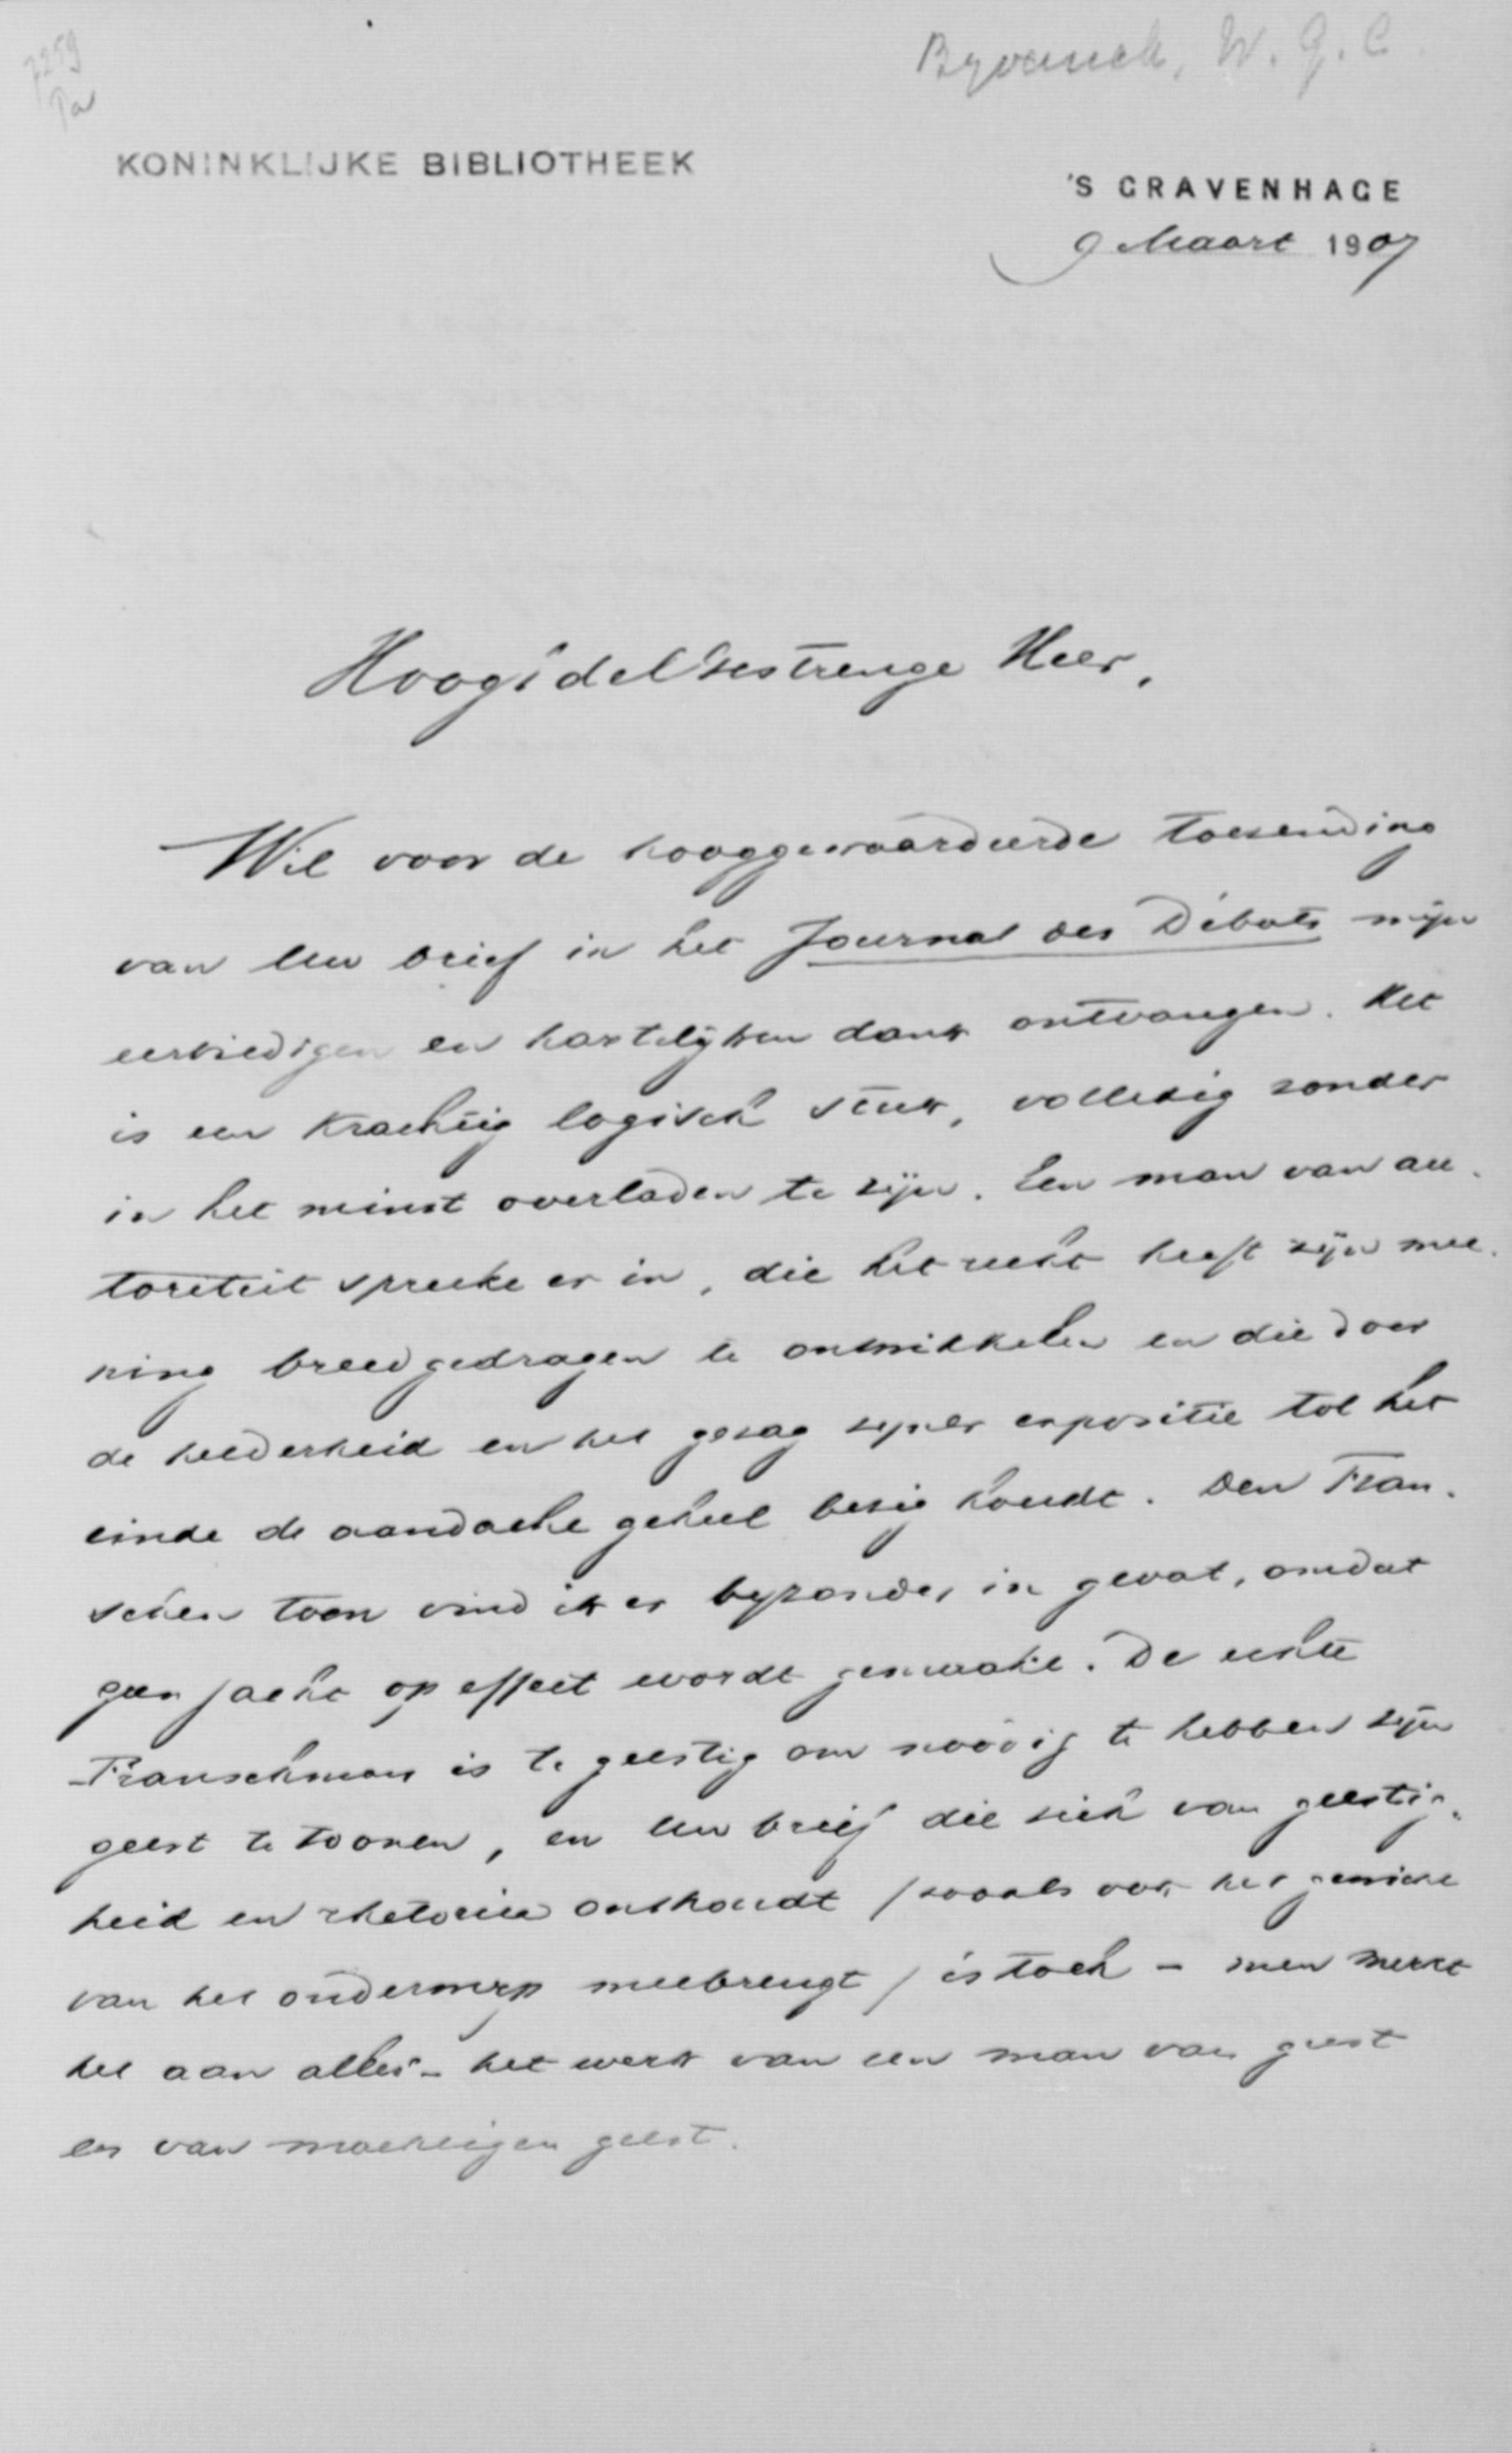 7259
Pa
Byvanck, W. G. C.
KONINKLIJKE BIBLIOTHEEK
'S GRAVENHAGE
9 Maart 1907
HoogEdelGestrenge Heer,
Wil voor de hooggewaardeerde toezending
van Uw brief in het Journal des Débats mijn
eerbiedigen en hartelijken dank ontvangen. Het
is een krachtig logisch stuk, volledig zonder
in het minst overladen te zijn. Een man van au-
toriteit spreekt er in, die het recht heeft zijn mee-
ning breedgedragen te ontwikkelen en die door
de helderheid en het gezag zijner expositie tot het
einde de aandacht geheel bezig houdt. Den Fran-
schen toon vind ik er byzonder in gevat, omdat
geen jacht op effect wordt gemaakt. De echte
Franschman is te geestig om noodig te hebben zijn
geest te toonen, en Uw brief die zich van geestig-
heid en rhetoriek onthoudt / zooals ook het gewicht
van het onderwerp meebrengt / is toch - men merkt
het aan alles - het werk van een man van geest
en van machtigen geest.